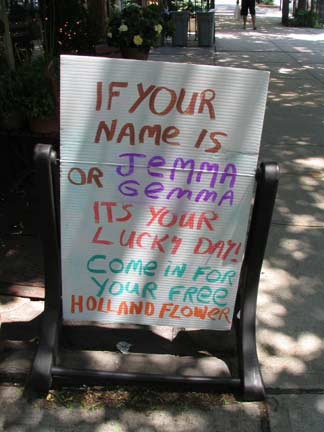 IF YOUR
NAME IS
JEMMA
OR GEMMA
ITS YOUR
LUCKY DAY!
COME IN FOR
YOUR FREE
HOLLAND FLOWER